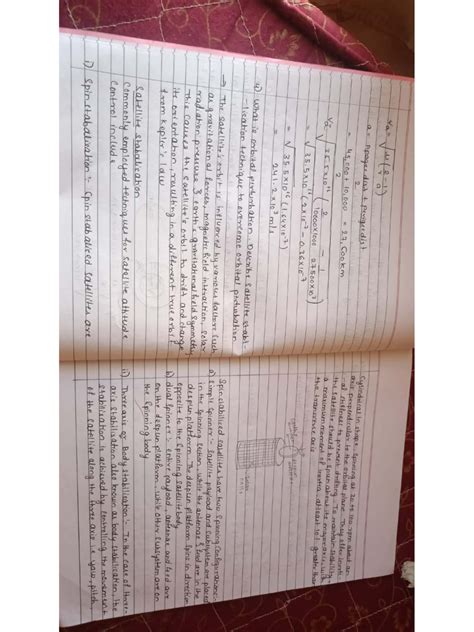 a = Apogee dist + Perigee dist
2
45,000 + 10,000 = 27,500 km
2
4) What is orbital pertubation. Describe satellite stabi-
lisation technique to overcome orbital pertubation.
→ The satellite's orbit is influenced by various factors such
as gravitational forces, magnetic field interaction, solar
radiation pressure & earth's gravitational field symmetry.
This causes the satellite's orbit to drift and change
its orientation, resulting in a different true orbit
from Kepler's law
Satellite stabalization
Commonly employed techniques for satellite attitude
control include
i) Spin stabalization :- Spin stabalised satellites are
Cylindrical in shape, spinning at 30 to 100 rpm about an
axis perpendicular to the orbital plane. They often
to prevent drifting. To maintain stability,
the satellite should be spun about its major axis, with
a maximum moment of inertia, atleast 10% greater than
the transverse axis.
Spin stabilised satellites have two spinning configurations
a) Simple Spinner :- Satellite payload and subsystem are placed
in the spinning section, while the antenna & feed are in the
despun platform. The despun platform spins in direction
opposite to the spinning satellite body.
b) dual Spinner :- Entire payload, antenna and feed are
on the despun platform, while other subsystem are on
the spinning body.
ii) Three axis or Body stabilisation :- In the case of three-
axis stabilisation also known as body stabilisation, the
stabilisation is achieved by controlling the movement
of the satellite along the three axis i.e yaw, pitch,